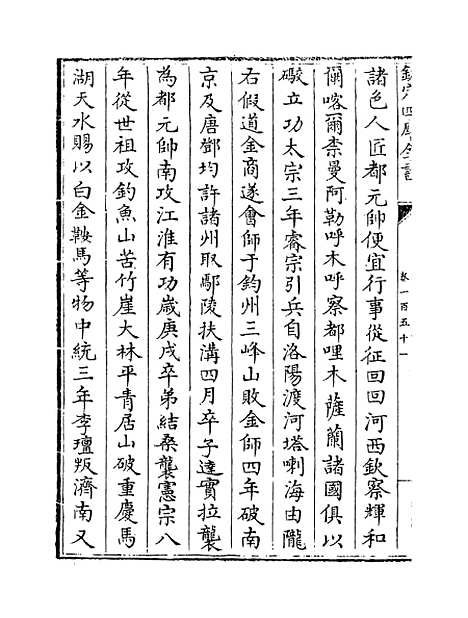 欽定四庫全書
卷一百五十一
諸色人匠都元帥便宜行事從征回回河西欽察輝和
爾喀爾柰曼阿勒呼木呼察都哩木薩蘭諸國俱以
礮立功太宗三年睿宗引兵自洛陽渡河塔喇海由隴
右假道金商遂會師于鈞州三峰山敗金師四年破南
京及唐鄧均許諸州取鄢陵扶溝四月卒子達實拉襲
為都元帥南攻江淮有功歲庚戌卒弟結桑襲憲宗八
年從世祖攻釣魚山苦竹崖大林平青居山破重慶馬
湖天水賜以白金鞍馬等物中統三年李璮叛濟南又